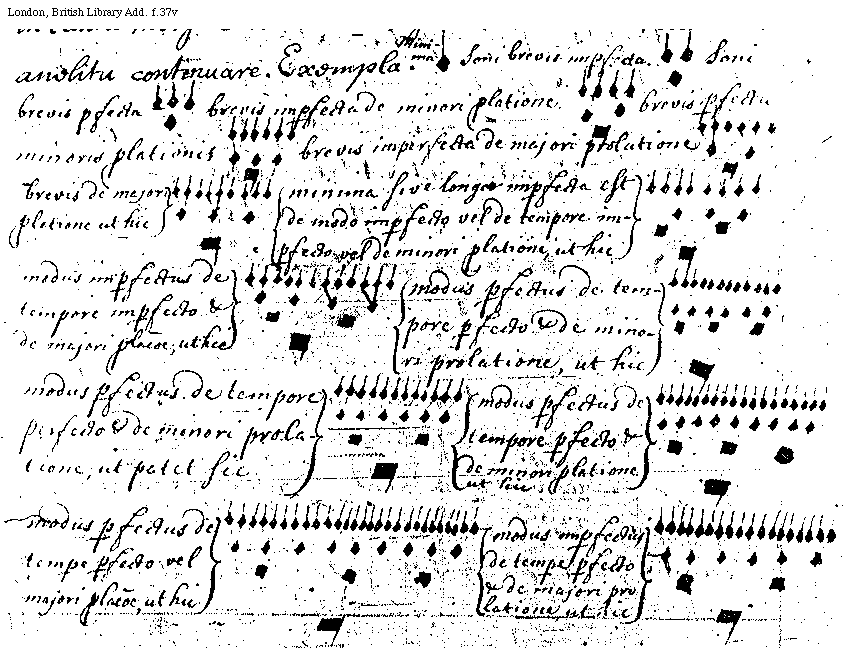 London, British Library Add. f.37v
anelitu continuare. Exempla. Mini-ma Soni brevis impfecta. Soni
brevis pfecta brevis impfecta de minori platione brevis pfecta
minoris plationis brevis imperfecta de majori prolatione
brevis de majori platione ut hic
minima sive longa impfecta est
de modo impfecto vel de tempore im-
pfecto vel de minori platione, ut hic
modus impfectus de
tempore impfecto &
de majori placõe, ut hic
modus pfectus de tem-
pore pfecto & de mino-
ri prolatione, ut hic
modus pfectus de tempore
perfecto & de minori prola-
tione, ut patet hic
modus pfectus de
tempore pfecto &
de minori platione
ut hic
modus pfectus de
tempe pfecto vel
majori placõe, ut hic
modus impfectus
de tempe pfecto
& de majori pro
latione ut hic